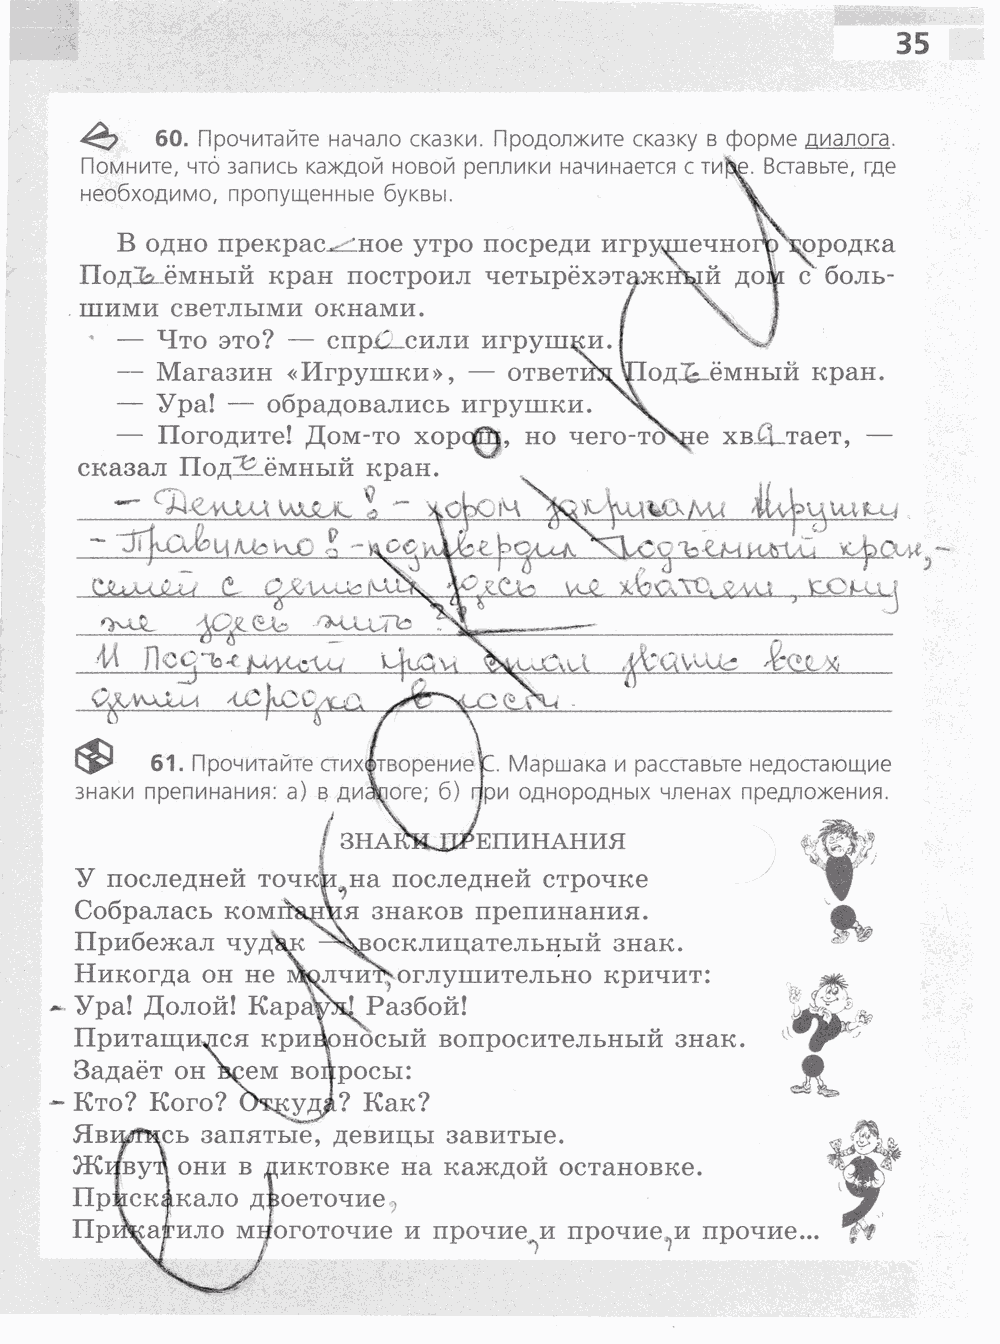 35
60. Прочитайте начало сказки. Продолжите сказку в форме диалога.
Помните, что запись каждой новой реплики начинается с тире. Вставьте, где
необходимо, пропущенные буквы.
В одно прекрас_ное утро посреди игрушечного городка
Подъёмный кран построил четырёхэтажный дом с боль-
шими светлыми окнами.
— Что это? — спросили игрушки.
— Магазин «Игрушки», — ответил Подъёмный кран.
— Ура! — обрадовались игрушки.
— Погодите! Дом-то хорош, но чего-то не хватает, —
сказал Подъёмный кран.
- Детишек! - хором закричали Игрушки.
- Правильно! - подтвердил Подъёмный кран, -
семей с детьми здесь не хватает, кому
же здесь жить??
И Подъемный кран стал звать всех
детей городка в гости.
61. Прочитайте стихотворение С. Маршака и расставьте недостающие
знаки препинания: а) в диалоге; б) при однородных членах предложения.
ЗНАКИ ПРЕПИНАНИЯ
У последней точки, на последней строчке
Собралась компания знаков препинания.
Прибежал чудак — восклицательный знак.
Никогда он не молчит, оглушительно кричит:
- Ура! Долой! Караул! Разбой!
Притащился кривоносый вопросительный знак.
Задаёт он всем вопросы:
- Кто? Кого? Откуда? Как?
Явились запятые, девицы завитые.
Живут они в диктовке на каждой остановке.
Прискакало двоеточие,
Прикатило многоточие и прочие, и прочие, и прочие...